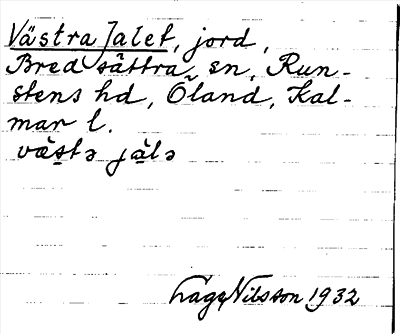 Västra Jalet, jord,
Bredsättra sn, Run-
stens hd, Öland, Kal-
mar l.
væstə jälə
Lage Nilsson 1932